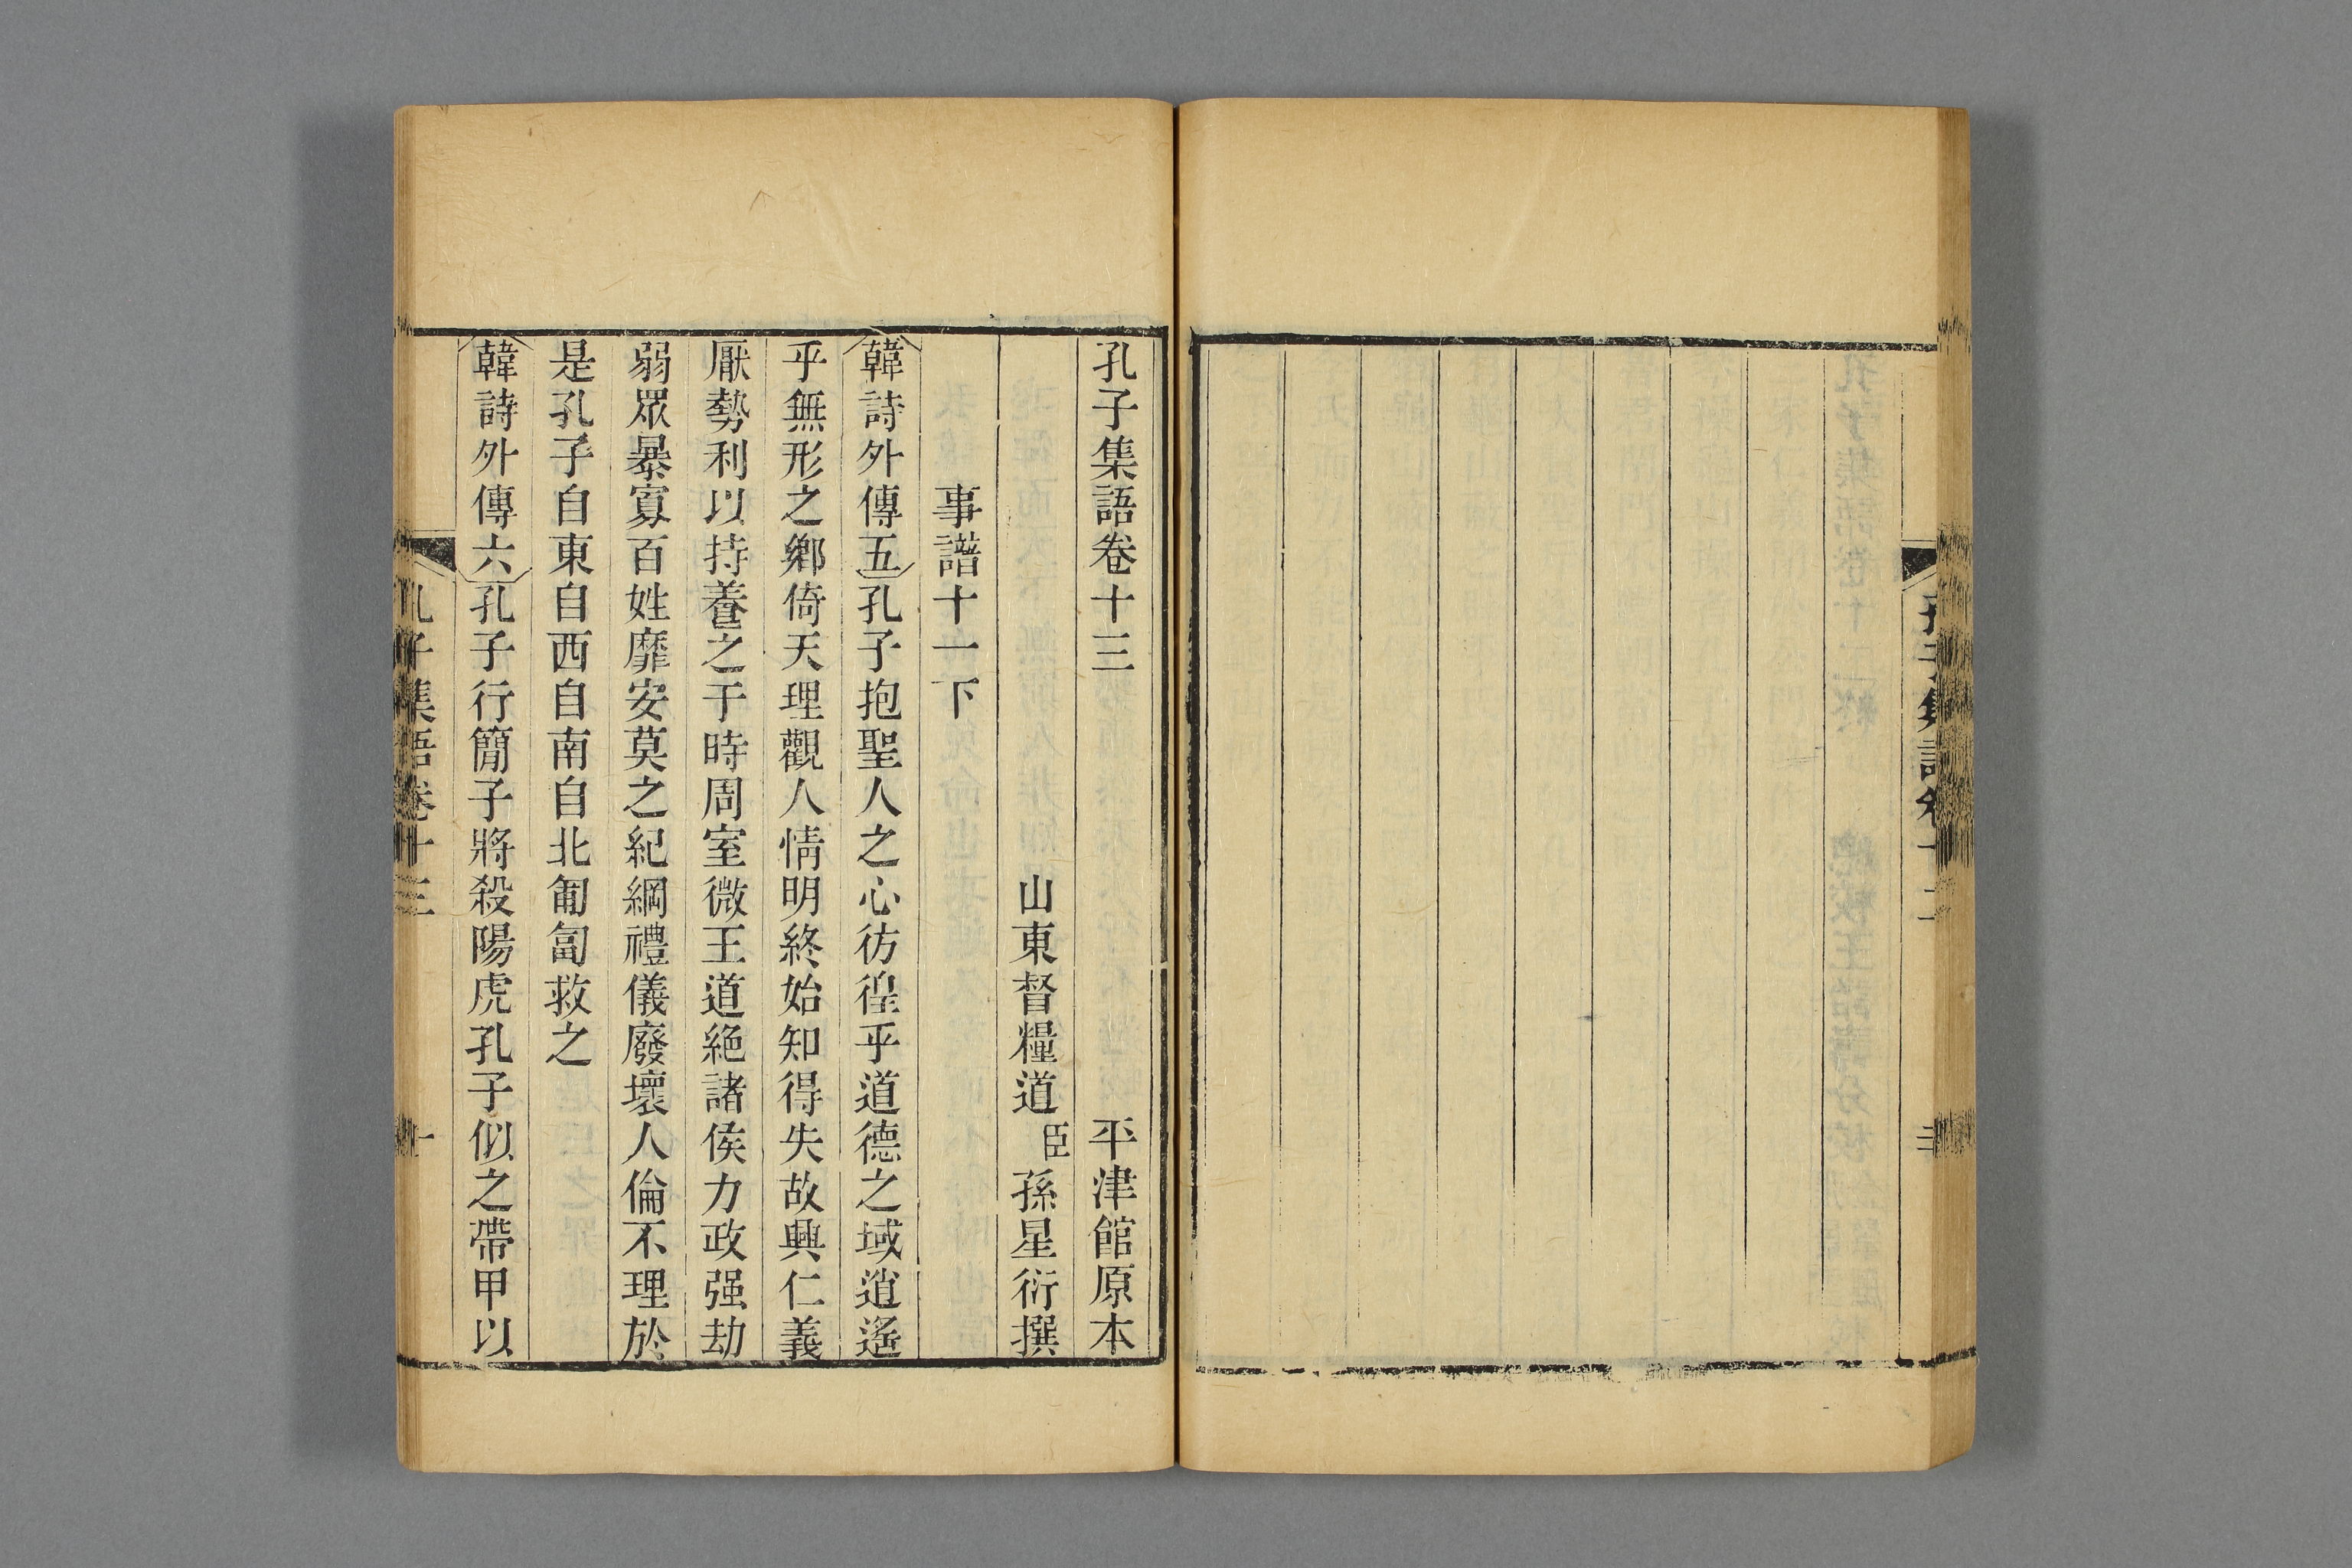 孔子集語卷十三 平津館原本
山東督糧道臣孫星衍撰
事譜十一下
韓詩外傳五孔子抱聖人之心彷徨乎道德之域逍遙
乎無形之鄉倚天理觀人情明終始知得失故興仁義
厭勢利以持養之于時周室微王道絕諸侯力政强劫
弱眾暴寡百姓靡安莫之紀綱禮儀廢壞人倫不理於
是孔子自東自西自南自北匍匐救之
韓詩外傳六孔子行簡子將殺陽虎孔子似之帶甲以
孔子集語卷十三